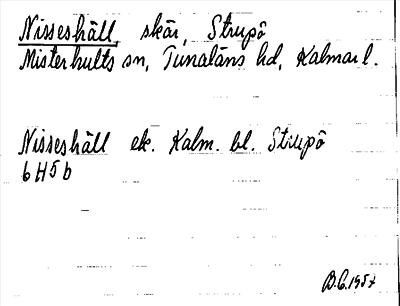 Nisseshäll, skär, Strupö
Misterhults sn, Tunaläns hd, Kalmar l.
Nisseshäll ek. Kalm. bl. Strupö
6H5b
B.G. 1957